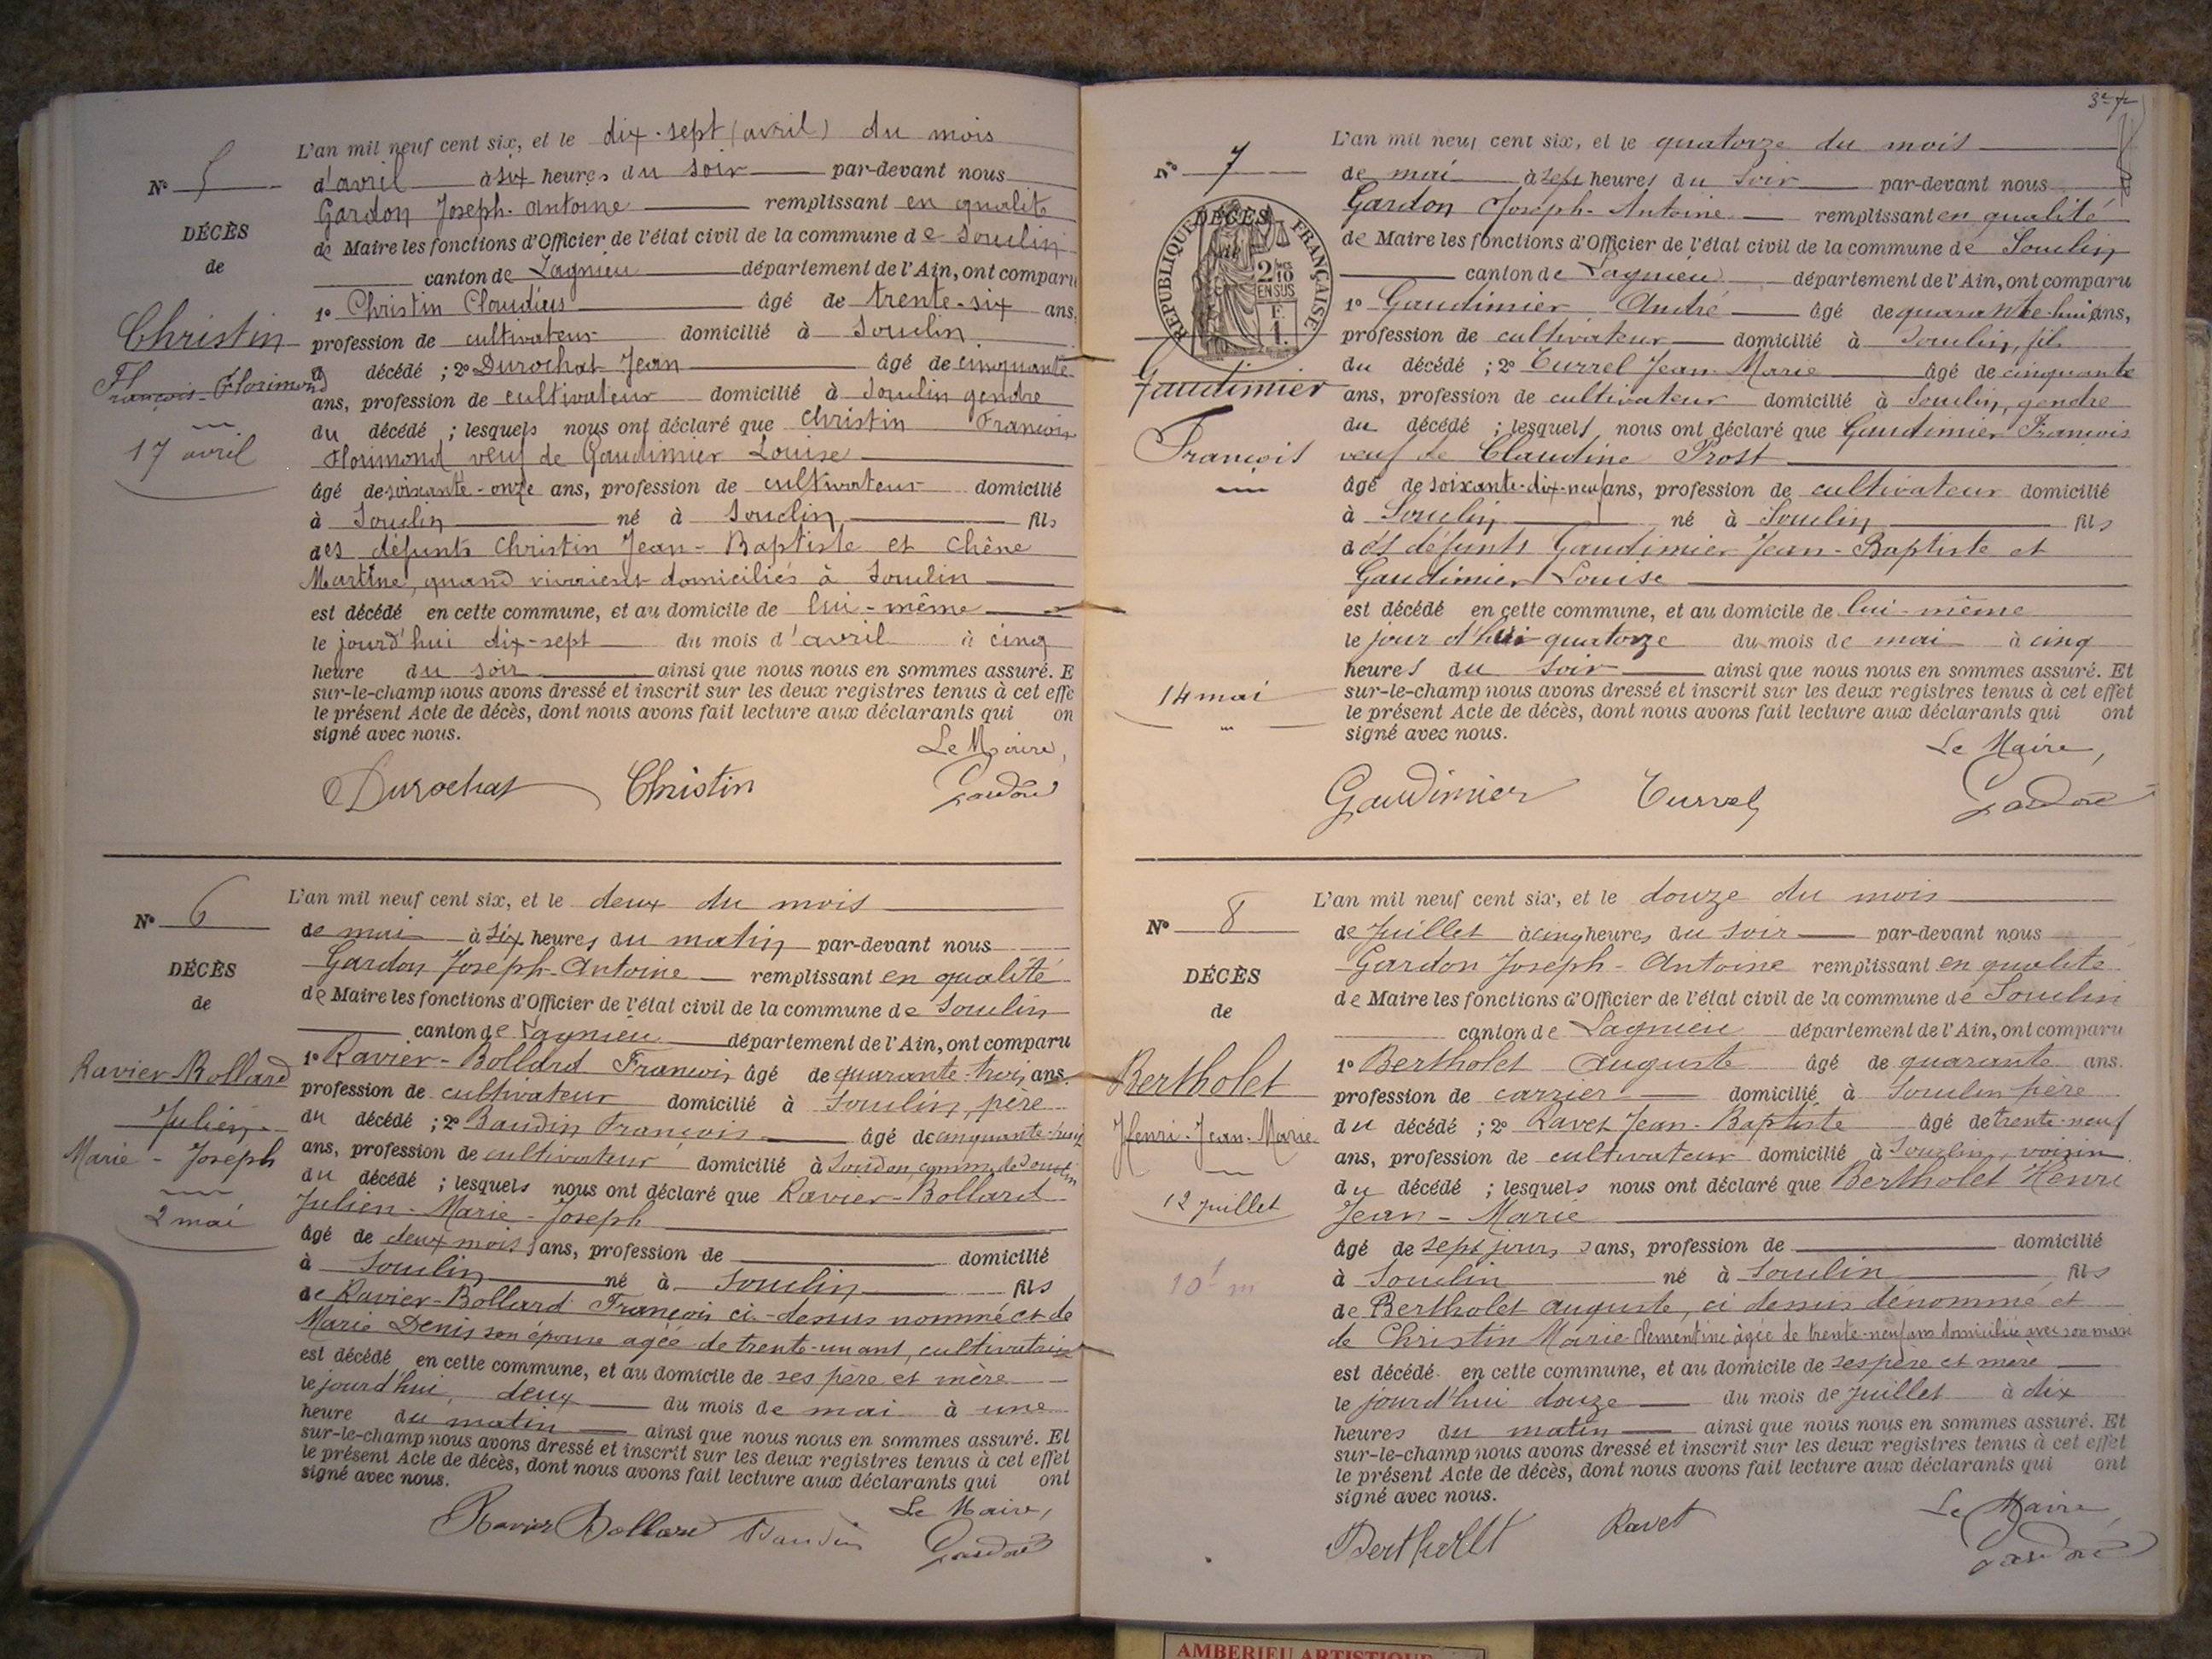 L'an mil neuf cent six, et le dix-sept (avril) du mois
N° 5
d'avril à six heures du soir par-devant nous
Gardon Joseph-Antoine remplissant en qualité
DÉCÈS
de Maire les fonctions d'Officier de l'état civil de la commune de Souclin
de
canton de Lagnieu département de l'Ain, ont comparu
1° Christin Claudius âgé de trente-six ans,
Christin
profession de cultivateur domicilié à Souclin
François-Florimond
décédé ; 2° Durochat Jean âgé de cinquante
ans, profession de cultivateur domicilié à Souclin gendre
17 avril
du décédé ; lesquels nous ont déclaré que Christin François
Florimond veuf de Gaudimier Louise
âgé de soixante-onze ans, profession de cultivateur domicilié
à Souclin né à Souclin fils
des défunts Christin Jean-Baptiste et Chêne
Martine, quand vivaient domiciliés à Souclin
est décédé en cette commune, et au domicile de lui-même
le jourd'hui dix-sept du mois d'avril à cinq
heure du soir ainsi que nous nous en sommes assuré. E
sur-le-champ nous avons dressé et inscrit sur les deux registres tenus à cet effe
le présent Acte de décès, dont nous avons fait lecture aux déclarants qui on
signé avec nous.
Le Maire,
Durochat Christin Gardon
L'an mil neuf cent six, et le deux du mois
N° 6
de mai à six heures du matin par-devant nous
Gardon Joseph-Antoine remplissant en qualité
DÉCÈS
de Maire les fonctions d'Officier de l'état civil de la commune de Souclin
de
canton de Lagnieu département de l'Ain, ont comparu
1° Ravier-Bollard François âgé de quarante-trois ans.
Ravier Bollard
profession de cultivateur domicilié à Souclin, père
Julien
du décédé ; 2° Baudin François âgé de cinquante-huit
Marie-Joseph
ans, profession de cultivateur domicilié à Soudon, comm. de Souclin
du décédé ; lesquels nous ont déclaré que Ravier-Bollard
2 mai
Julien-Marie-Joseph
âgé de deux mois ans, profession de domicilié
à Souclin né à Souclin fils
de Ravier-Bollard François ci-dessus nommé et de
Marie Denis son épouse agée de trente-un ans, cultivatrice
est décédé en cette commune, et au domicile de ses père et mère
le jourd'hui deux du mois de mai à une
heure du matin ainsi que nous nous en sommes assuré. Et
sur-le-champ nous avons dressé et inscrit sur les deux registres tenus à cet effet
le présent Acte de décès, dont nous avons fait lecture aux déclarants qui ont
signé avec nous.
Le Maire,
Ravier Bollard Baudin Gardon
L'an mil neuf cent six, et le quatorze du mois
N° 7
de mai à sept heures du soir par-devant nous
Gardon Joseph-Antoine remplissant en qualité
DÉCÈS
RÉPUBLIQUE FRANÇAISE
2/10
EN SUS
F.
1.
de Maire les fonctions d'Officier de l'état civil de la commune de Souclin
canton de Lagnieu département de l'Ain, ont comparu
1° Gaudimier André âgé de quarante-huit ans,
profession de cultivateur domicilié à Souclin, fils
Gaudimier
du décédé ; 2° Turrel Jean-Marie âgé de cinquante
ans, profession de cultivateur domicilié à Souclin, gendre
du décédé ; lesquels nous ont déclaré que Gaudimier François
François
veuf de Claudine Prost
âgé de soixante-dix-neuf ans, profession de cultivateur domicilié
à Souclin né à Souclin fils
des défunts Gaudimier Jean-Baptiste et
Gaudimier Louise
est décédé en cette commune, et au domicile de lui-même
le jour d'hui quatorze du mois de mai à cinq
heures du soir ainsi que nous nous en sommes assuré. Et
14 mai
sur-le-champ nous avons dressé et inscrit sur les deux registres tenus à cet effet
le présent Acte de décès, dont nous avons fait lecture aux déclarants qui ont
signé avec nous.
Le Maire,
Gaudimier Turrel Gardon
L'an mil neuf cent six, et le douze du mois
N° 8
de Juillet à cinq heures du soir par-devant nous
Gardon Joseph-Antoine remplissant en qualité
DÉCÈS
de Maire les fonctions d'Officier de l'état civil de la commune de Souclin
de
canton de Lagnieu département de l'Ain, ont comparu
1° Bertholet Auguste âgé de quarante ans.
Bertholet
profession de carrier domicilié à Souclin père
Henri-Jean-Marie
du décédé ; 2° Ravet Jean-Baptiste âgé de trente-neuf
ans, profession de cultivateur domicilié à Souclin, voisin
du décédé ; lesquels nous ont déclaré que Bertholet Henri
12 juillet
Jean-Marie
âgé de sept jours ans, profession de domicilié
à Souclin né à Souclin fils
de Bertholet Auguste, ci dessus dénommé et
de Christin Marie-Clementine âgée de trente-neuf ans domiciliée avec son mari
est décédé en cette commune, et au domicile de ses père et mère
le jourd'hui douze du mois de juillet à dix
heures du matin ainsi que nous nous en sommes assuré. Et
sur-le-champ nous avons dressé et inscrit sur les deux registres tenus à cet effet
le présent Acte de décès, dont nous avons fait lecture aux déclarants qui ont
signé avec nous.
Le Maire
Bertholet Ravet Gardon
AMBERIEU ARTISTIQUE